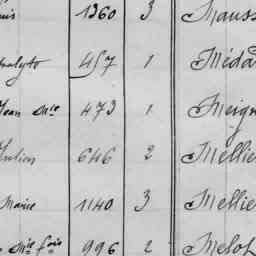 uis 1360 3 Mauss
polyte 457 1 Méda
Jean Mie 473 1 Meign
Julien 646 2 Mellie
Marie 1140 3 Mellie
Mie fois 996 2 Melot